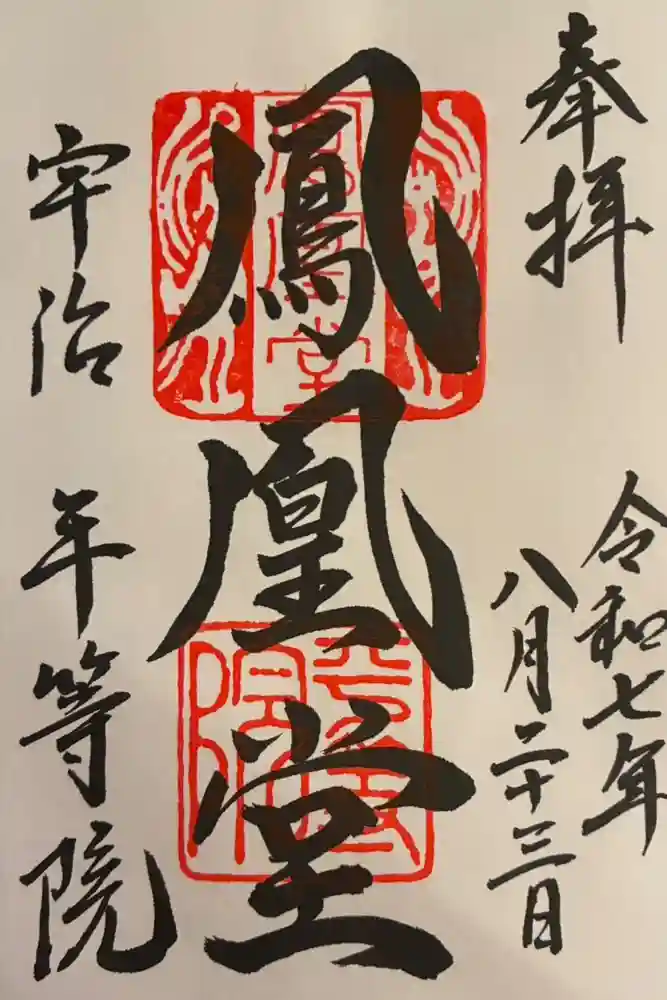 奉拝
令和七年
八月二十三日
鳳凰堂
宇治
平等院
鳳凰堂
平等院